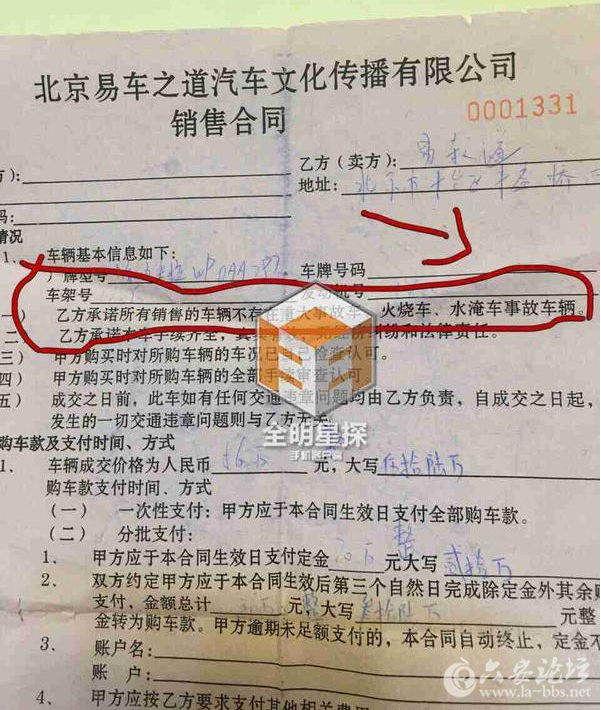 北京易车之道汽车文化传播有限公司
销售合同
0001331
方):
乙方（卖方）:
地址:
码:
情况
1、车辆基本信息如下:
厂牌型号 车牌号码
车架号 发动机号
一） 乙方承诺所有销售的车辆不存在重大事故车、火烧车、水淹车事故车辆。
二） 乙方承诺本车手续齐全，真实 纠纷和法律责任。
三） 甲方购买时对所购车辆的车况已自己检查认可。
四） 甲方购买时对所购车辆的全部手续审查认可
五） 成交之日前，此车如有任何交通违章问题均由乙方负责，自成交之日起，
发生的一切交通违章问题则与乙方无关
全明星探
购车款及支付时间、方式
1、 车辆成交价格为人民币 56万 元，大写 伍拾陆万
购车款支付时间、方式
（一） 一次性支付：甲方应于本合同生效日支付全部购车款。
（二） 分批支付： 整
1、 甲方应于本合同生效日支付定金 20万 元大写 贰拾万
2、 双方约定甲方应于本合同生效后第三个自然日完成除定金外其余购
支付，金额总计 元整大写 叁拾陆万 元整
金转为购车款。甲方逾期未足额支付的，本合同自动终止，定金不
3、 账户名：
账 户：
4、 甲方应按乙方要求支付其他相关费用
六安论坛
www.la-bbs.net